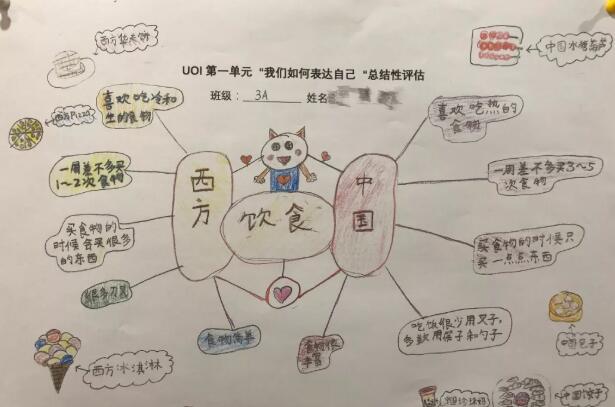 UOI 第一单元 "我们如何表达自己 "总结性评估
班级： 3A 姓名
西方华夫饼
中国水糖葫芦
喜欢吃冷和
生的食物
喜欢吃热的
食物
西方Pizza
一周差不多买
1～2次食物
一周差不多买3～5
次食物
西方
饮食
中国
买食物的
时候会买很多
的东西
买食物的时候只
买一点点东西
很多刀叉
食物简单
食物很
丰富
吃饭很少用叉子，
多数用筷子和勺子
中国包子
西方冰淇淋
中国饺子